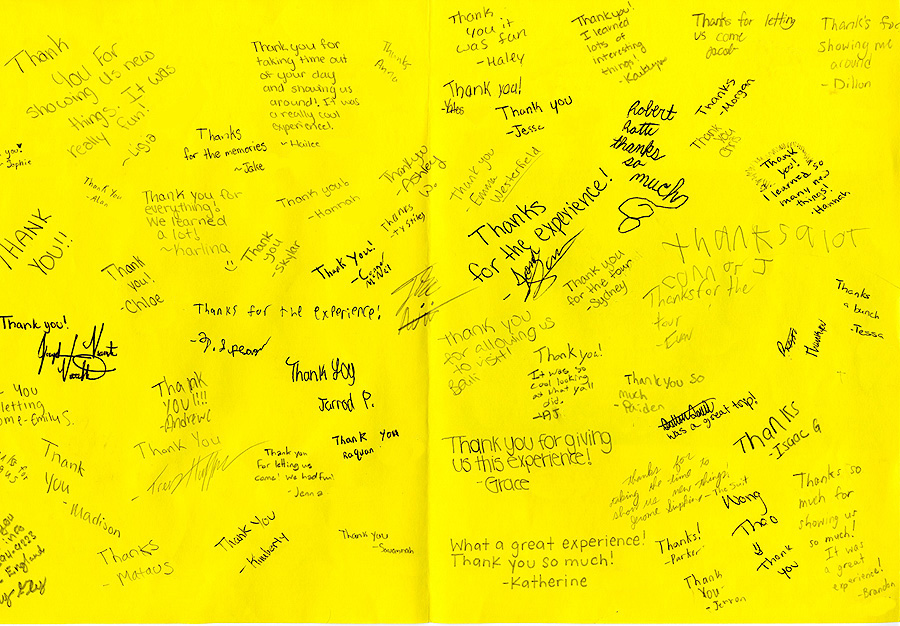 Thank
You For
Showing us new
things. It was
really fun!
-Ligia
Thank you for
taking time out
of your day
and showing us
around! It was
a really cool
experience!
~ Hailee
Thanks
Anna
you!
-Sophie
Thanks
for the memories
~ Jake
Thank You
-Alan
Thank you for
everything!
We learned
a lot!
-Karlina
Thank you!
-Hannah
Thank you
-Ashley
Thanks
THANK
YOU!!
Thank
you
-Skylar
Thank
you!
-Chloe
Thank You!
Thanks for the experience!
Thank you!
Thank You
Jarrod P.
You
letting
me-Emily S.
Thank
YOU!!!!
-Andrew C
Thank You
Thank
You
-Madison
Thank you
For letting us
come! We had fun!
-Jenna
Thank you
Raquan
Thanks
-Mataus
Thank You
-Kimberly
Thank you
-Savannah
- England
Thank
you it
was fun
-Haley
Thank you!
I learned
lots of
interesting
things!
-Kaitlyn
Thanks for letting
us come
Jacob
Thank's for
showing me
around
-Dillon
Thank you!
Thank you
-Jessa
Robert
thanks
so
much
Thanks
-Morgan
Thank
you
Chris
Thank you
-Emma
Westerfield
Thank
you!
I learned so
many new
things!
-Hannah
Thanks
for the experience!
Thank you
for the tour
-Sydney
thanks a lot
Connor J
Thanks for the
tour
-Evan
Thanks
a bunch
-Tessa
Thank you
for allowing us
visit!
Thank you!
It was so
cool looking
at what yall
did.
-AJ
Thank you so
much
was a great trip!
Thanks
-Isaac G
Thank you for giving
us this experience!
-Grace
Thanks for
taking the time to
show us new things!
What a great experience!
Thank you so much!
-Katherine
Thanks!
-Parker
Wong
Thank
you
Thank
You
Thanks so
much for
showing us
so much!
It was
a great
experience!
-Brandon